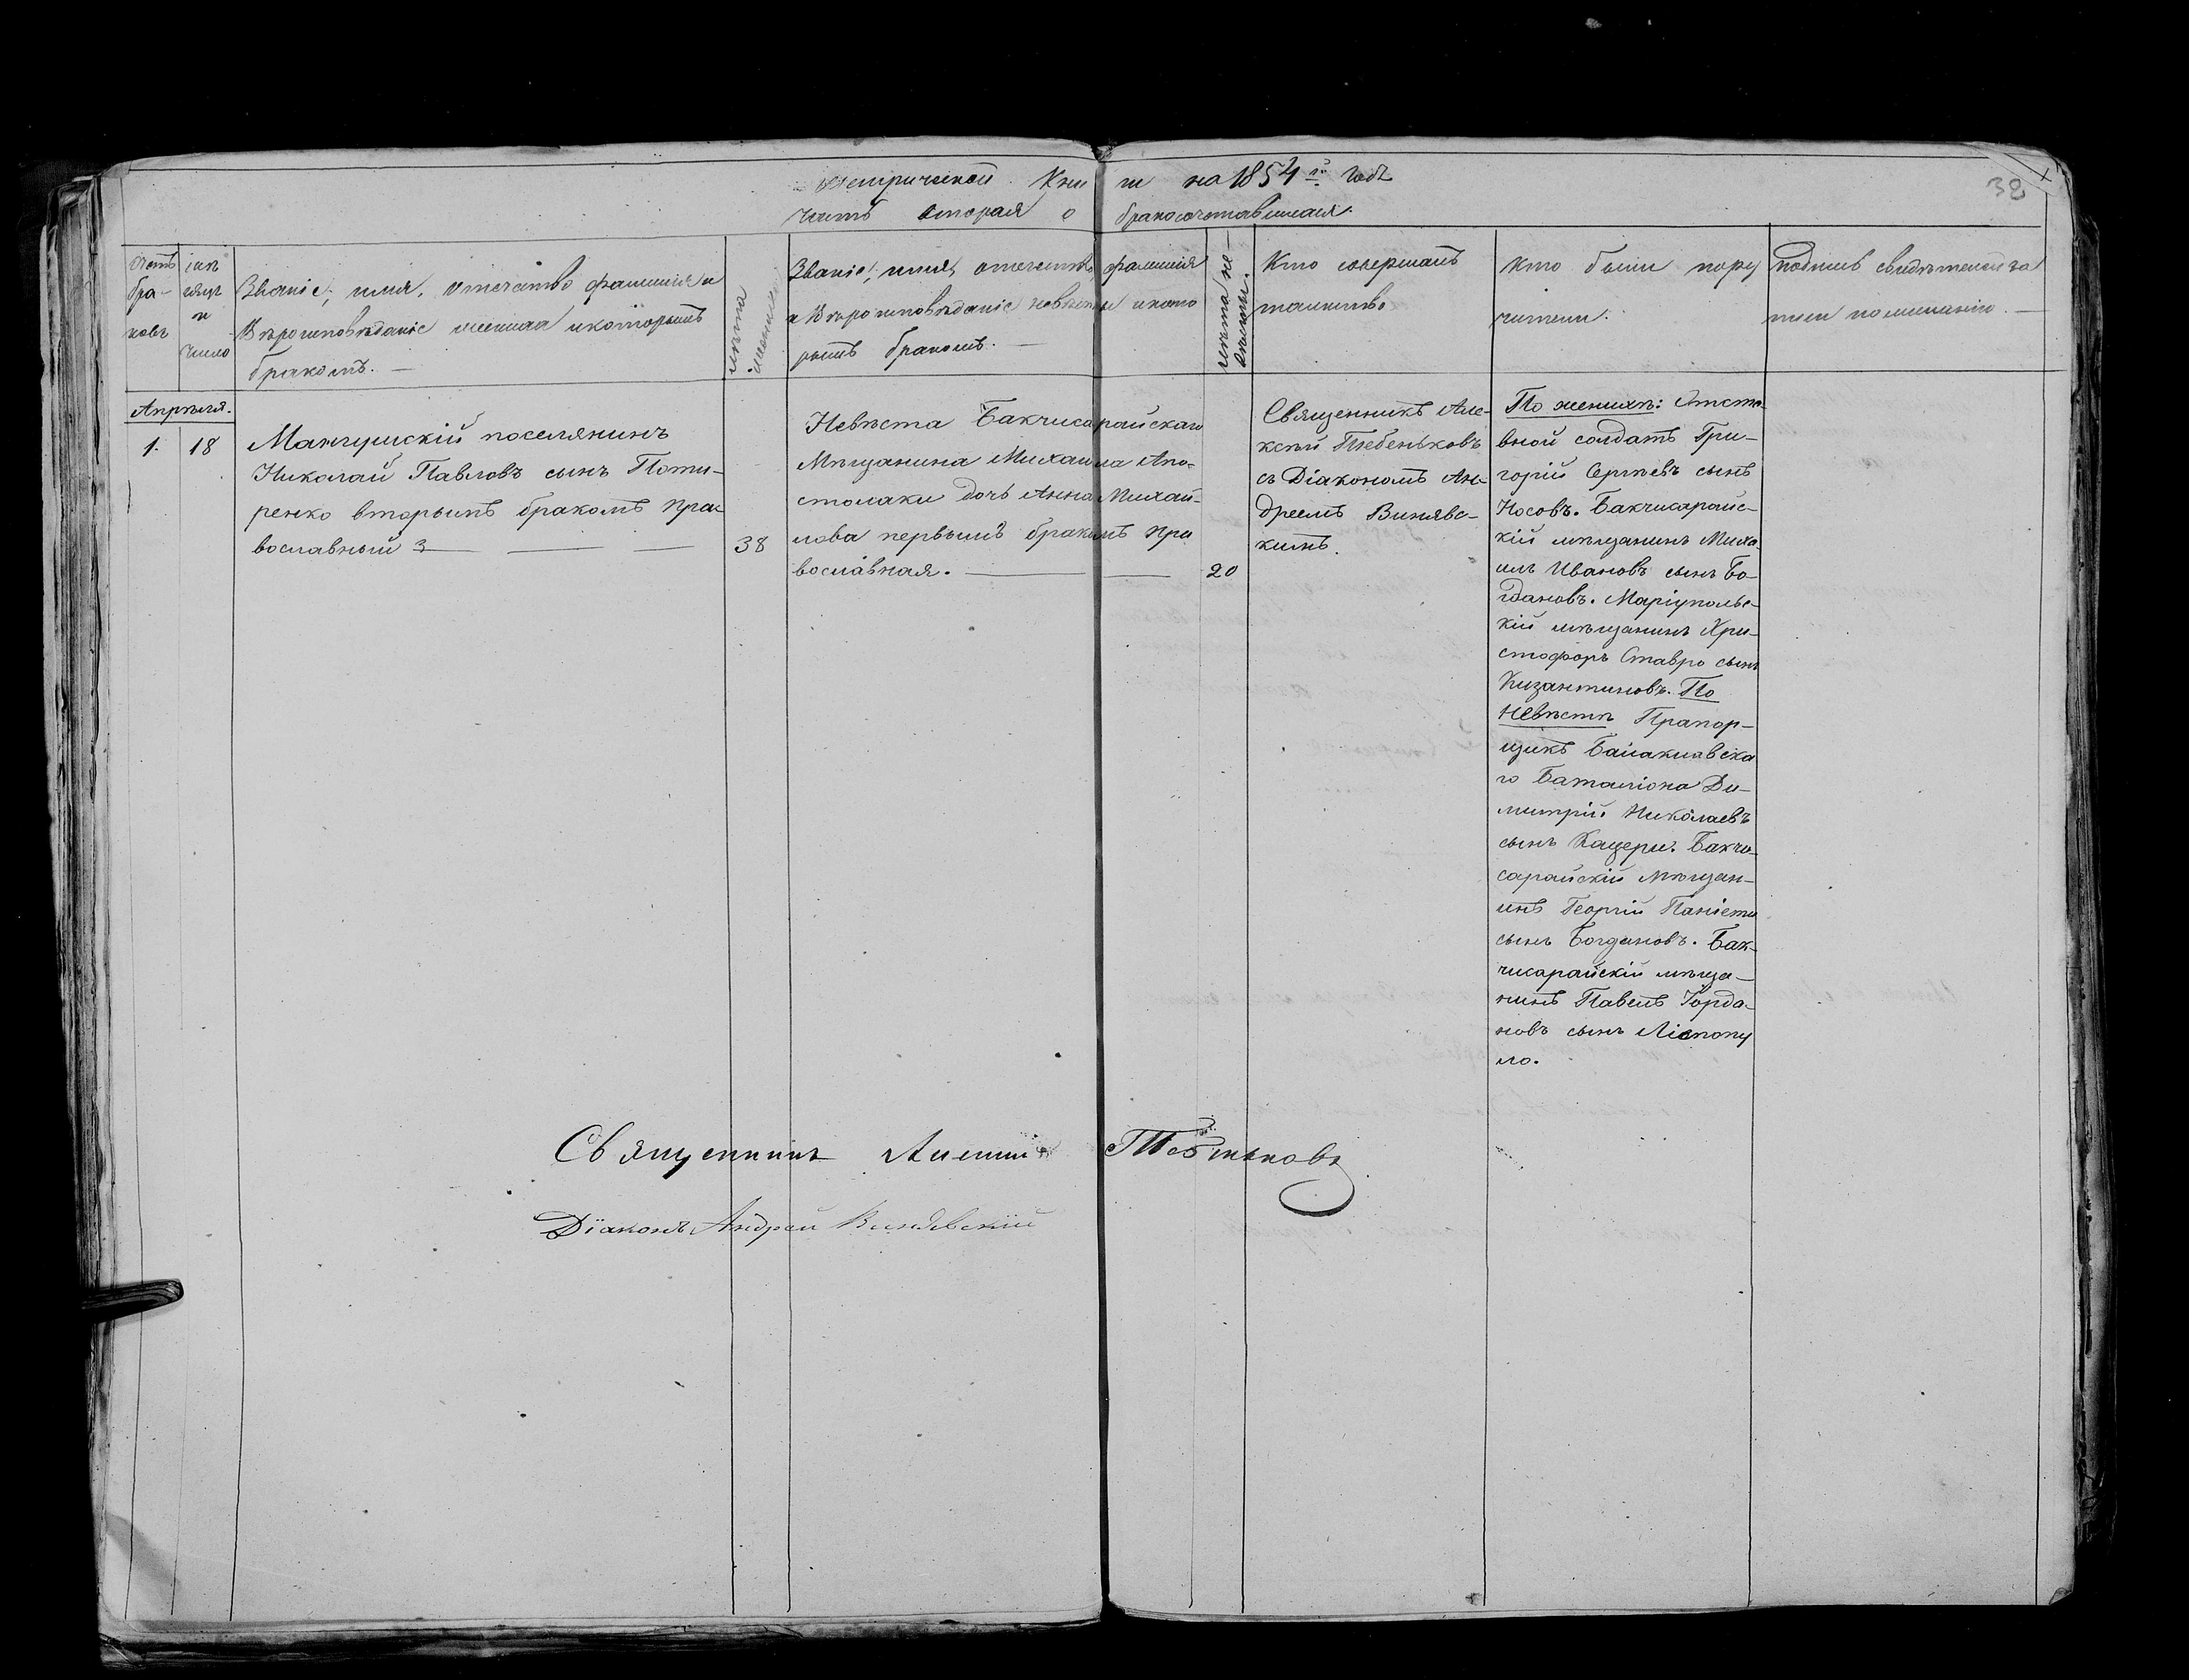 Метрической Книги на 1854й годъ
38
часть вторая о бракосочетавшихся.
Счетъ браковъ
Званіе, имя, отечество фамилія и
Вѣроисповѣданіе жениха и которымъ
бракомъ. —
лѣта жениха
Званіе, имя, отечество, фамилія
и Вѣроисповѣданіе невѣсты и кото
рымъ бракомъ. —
лѣта невѣсты.
Кто совершалъ
таинство
Кто были пору
чители.
подпись свидѣтелей за
писи по желанію. —
Апрѣля.
1. 18
Мангушскій поселянинъ
Николай Павловъ сынъ Поти-
ренко вторымъ бракомъ пра-
вославный
38
Невѣста Бакчисарайскаго
Мѣщанина Михаила Апо-
столаки дочь Анна Михай-
лова первымъ бракомъ пра
вославная.
20
Священникъ Але-
ксѣй Тебеньковъ
съ Діакономъ Ан-
дреемъ Винявс-
кимъ.
По женихѣ: Отста-
вной солдатъ Гри-
горій Сергѣевъ сынъ
Носовъ. Бакчисарайс-
кій мѣщанинъ Миха-
илъ Ивановъ сынъ Бо-
гдановъ. Маріупольс-
кій мѣщанинъ Хри-
стофоръ Ставро сынъ
Кизантиновъ. По
Невѣстѣ Прапор-
щикъ Балаклавска
го Баталіона Ди-
митрій Николаевъ
сынъ Кацери. Бакчи-
сарайскій мѣщан-
инъ Георгій Паніети
сынъ Богдановъ. Бак-
чисарайскій мѣща-
нинъ Павелъ Іорда-
новъ сынъ Ліопопу
ло.
Священникъ Алексій Тебеньковъ
Діаконъ Андрей Винявскій